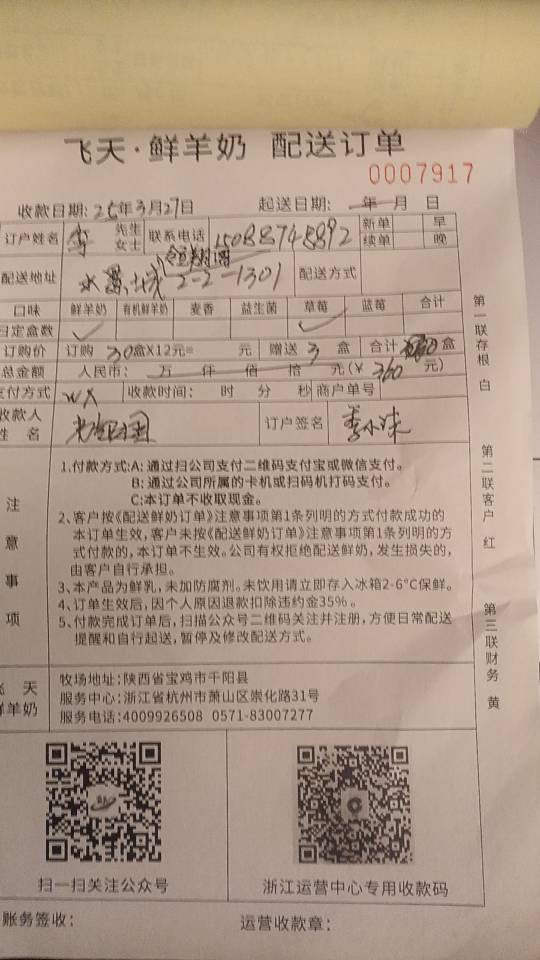 飞天·鲜羊奶 配送订单
0007917
收款日期:25年3月27日 起送日期: 年 月 日
订户姓名 李 先生 女士 联系电话 15088748892 新单 续单 早 晚
配送地址 水墨 城 2-2-1301 配送方式
口味 鲜羊奶 有机鲜羊奶 麦香 益生菌 草莓 蓝莓 合计
日定盒数 ✓ ✓
订购价 订购 30盒X12元= 元 赠送 3 盒 合计 盒
总金额 人民币: 万 仟 佰 拾 元(¥ 360 元)
支付方式 WX 收款时间: 时 分 秒 商户单号
收款人姓名 订户签名 李小
注意事项
1.付款方式:A:通过扫公司支付二维码支付宝或微信支付。
B:通过公司所属的卡机或扫码机打码支付。
C:本订单不收取现金。
2、客户按《配送鲜奶订单》注意事项第1条列明的方式付款成功的
本订单生效,客户未按《配送鲜奶订单》注意事项第1条列明的方
式付款的,本订单不生效。公司有权拒绝配送鲜奶,发生损失的,
由客户自行承担。
3、本产品为鲜乳,未加防腐剂。未饮用请立即存入冰箱2-6°C保鲜。
4、订单生效后,因个人原因退款扣除违约金35%。
5、付款完成订单后,扫描公众号二维码关注并注册,方便日常配送
提醒和自行起送,暂停及修改配送方式。
第一联存根 白
第二联客户 红
第三联财务 黄
飞天鲜羊奶
牧场地址:陕西省宝鸡市千阳县
服务中心:浙江省杭州市萧山区崇化路31号
服务电话:4009926508 0571-83007277
扫一扫关注公众号 浙江运营中心专用收款码
账务签收: 运营收款章: